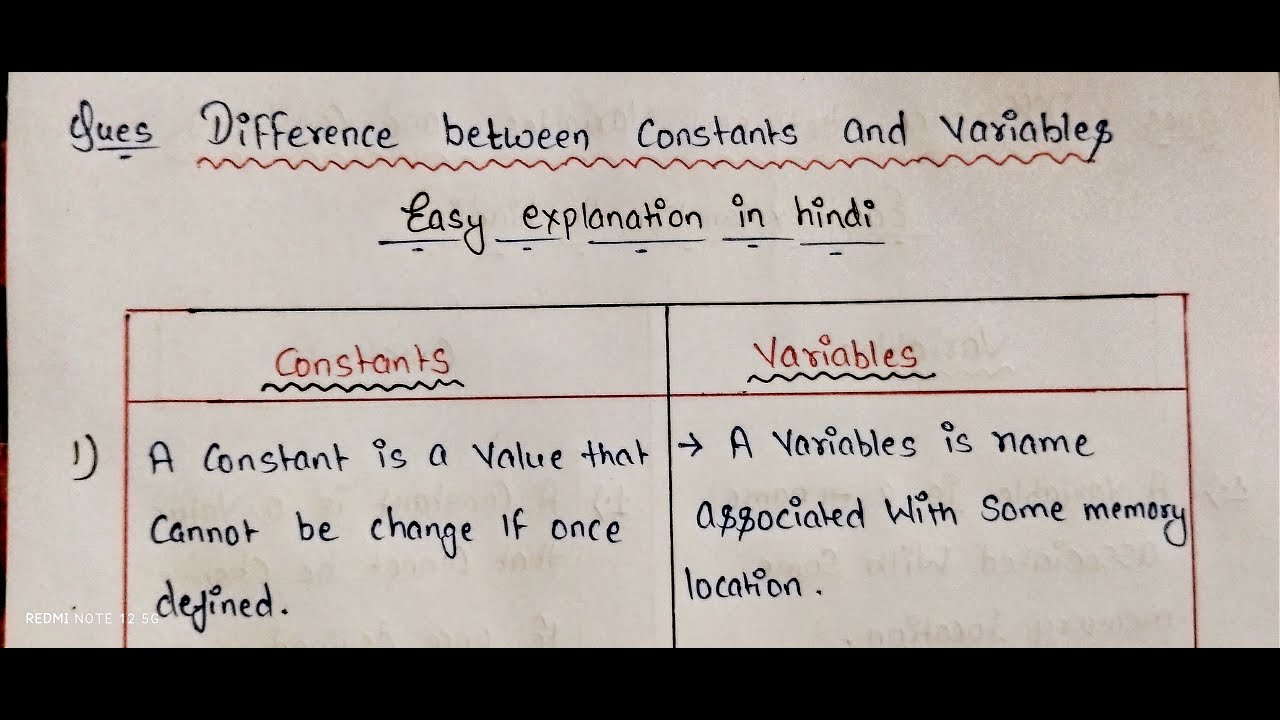 Ques Difference between Constants and Variables
Easy explanation in hindi
Constants
Variables
1) A Constant is a Value that
Cannot be change if once
defined.
→ A Variables is name
associated With Some memory
location.
REDMI NOTE 12 5G